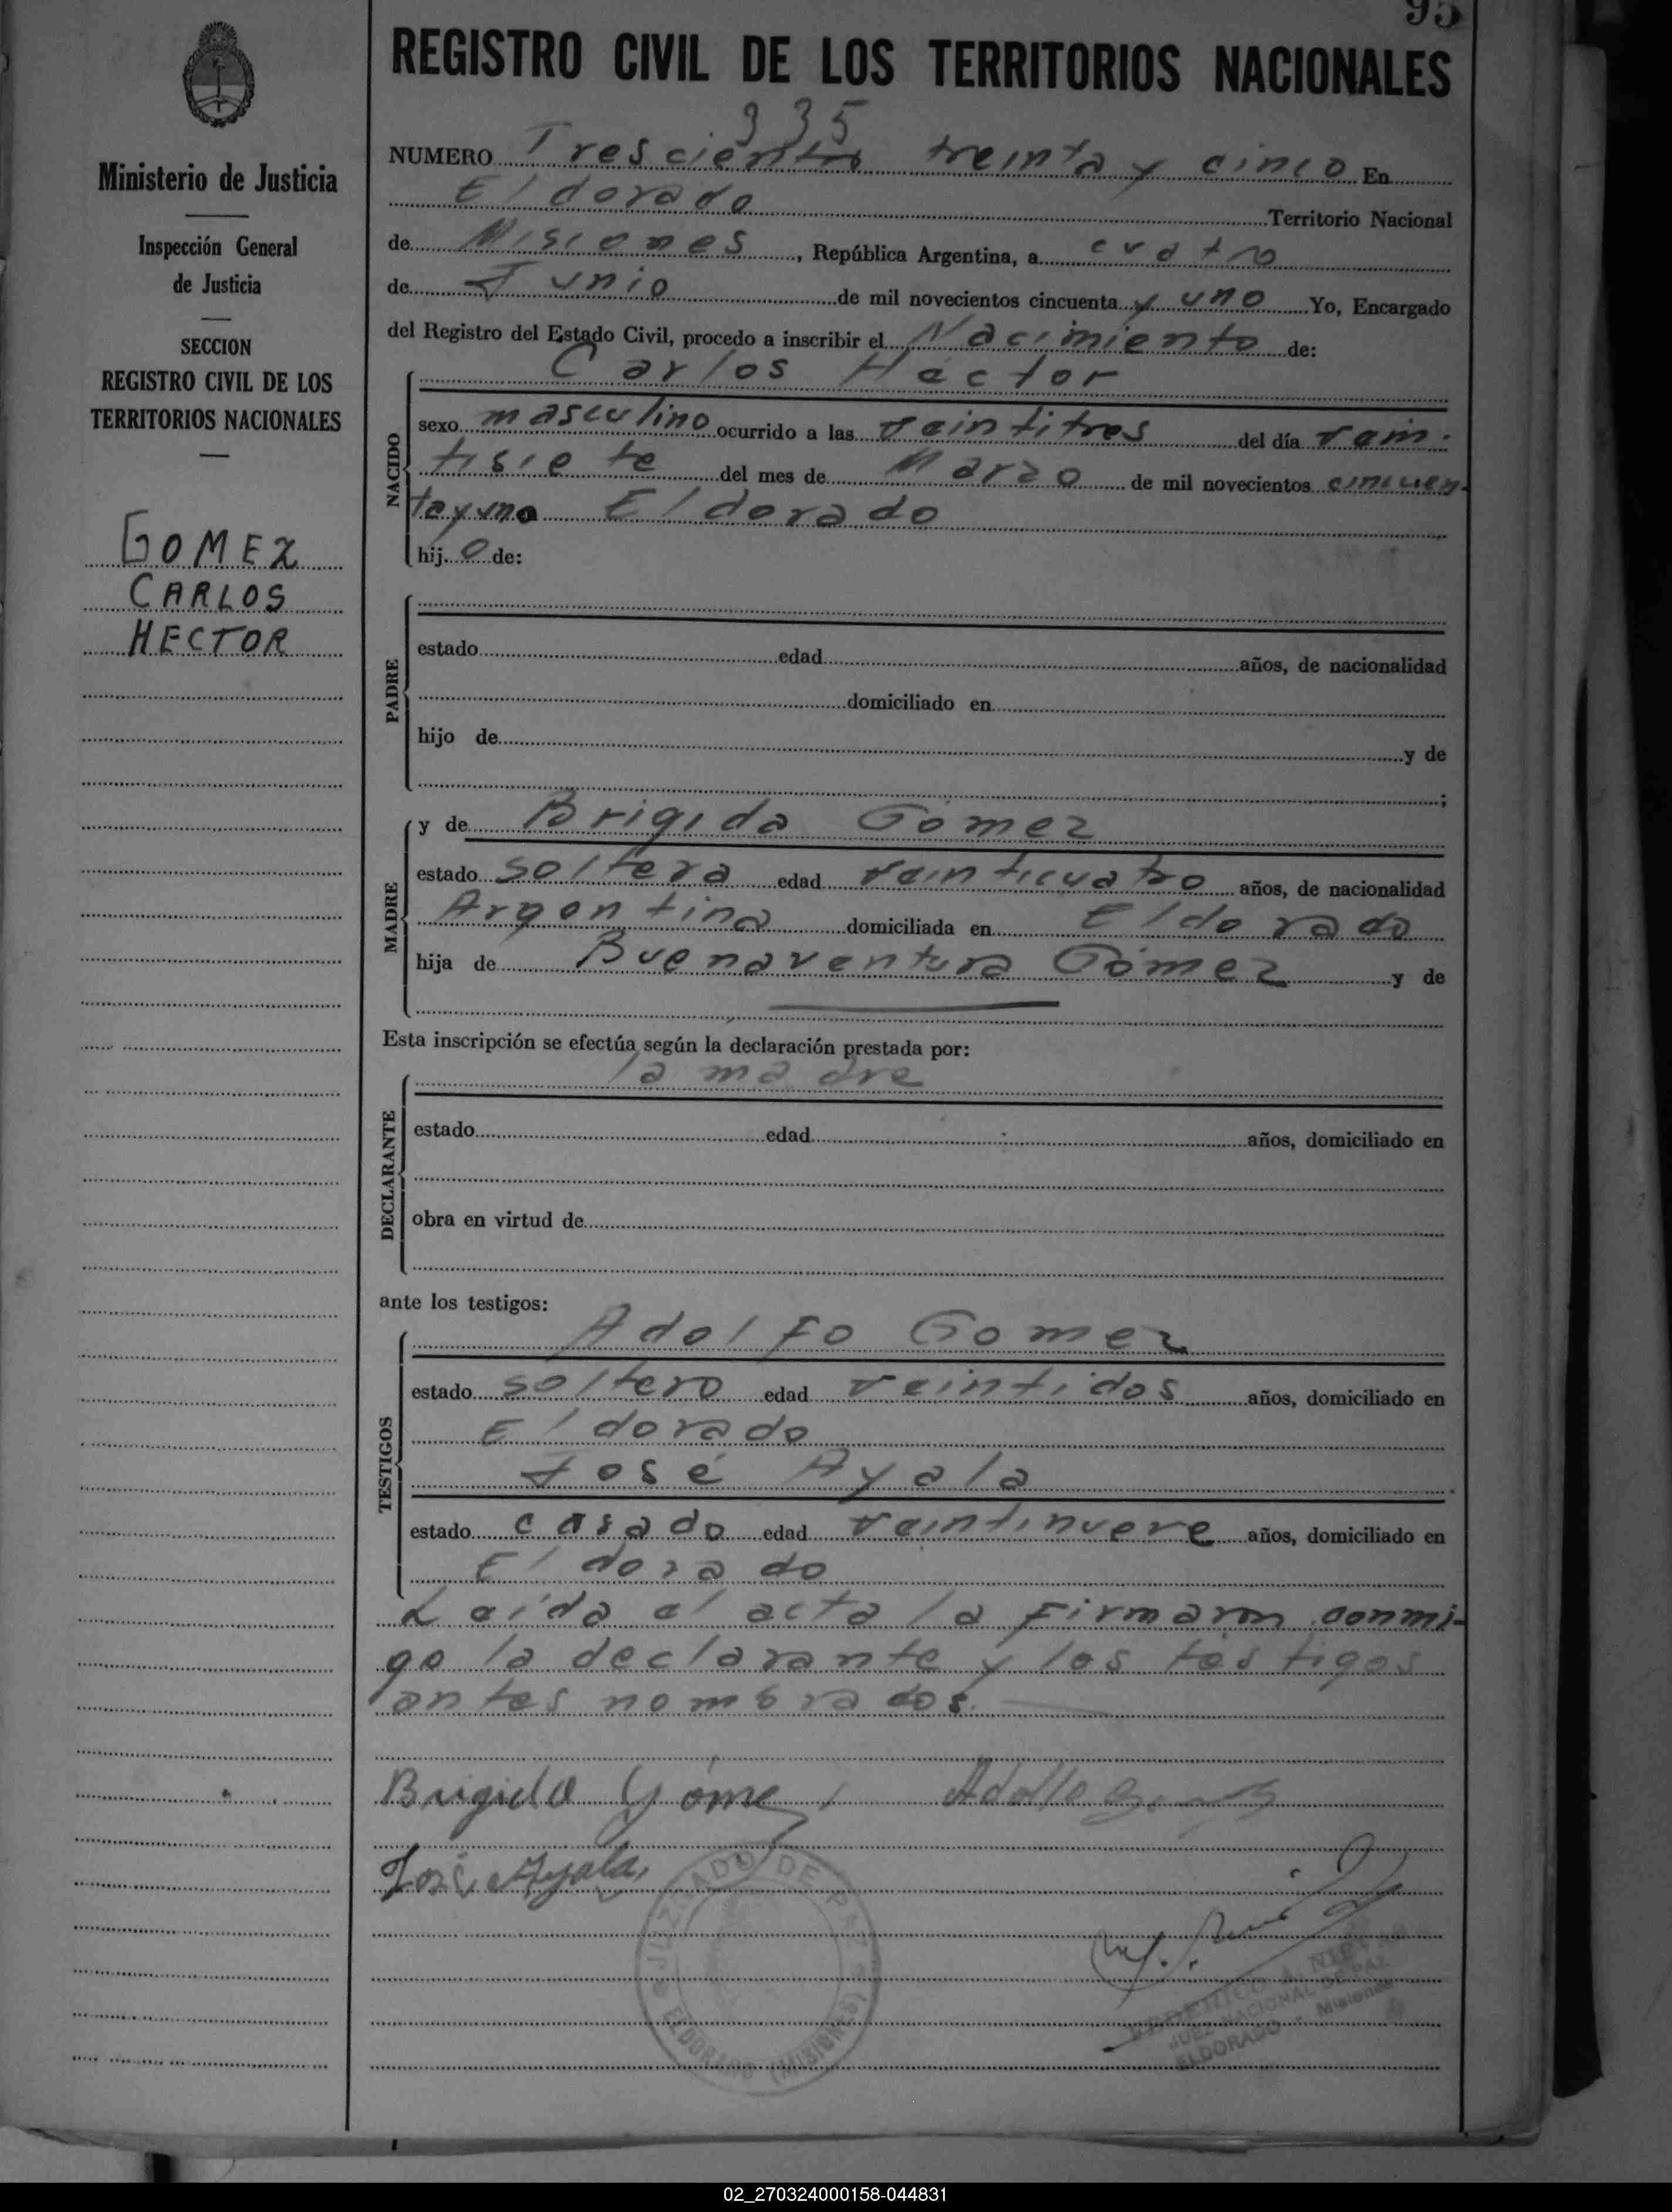 95
REGISTRO CIVIL DE LOS TERRITORIOS NACIONALES
Ministerio de Justicia
Inspección General
de Justicia
SECCION
REGISTRO CIVIL DE LOS
TERRITORIOS NACIONALES
GOMEZ
CARLOS
HECTOR
335
NUMERO Trescientos treinta y cinco En
Eldorado Territorio Nacional
de Misiones, República Argentina, a cuatro
de Junio de mil novecientos cincuenta y uno Yo, Encargado
del Registro del Estado Civil, procedo a inscribir el Nacimiento de:
NACIDO
Carlos Héctor
sexo masculino ocurrido a las veintitres del día vein-
tisiete del mes de Marzo de mil novecientos cincuen-
tayuno Eldorado
hij o de:
PADRE
estado edad años, de nacionalidad
domiciliado en
hijo de y de
;
MADRE
y de Brigida Gómez
estado soltera edad veinticuatro años, de nacionalidad
Argentina domiciliada en Eldorado
hija de Buenaventura Gómez y de
Esta inscripción se efectúa según la declaración prestada por:
DECLARANTE
la madre
estado edad años, domiciliado en
obra en virtud de
ante los testigos:
TESTIGOS
Adolfo Gomez
estado soltero edad veintidos años, domiciliado en
Eldorado
José Ayala
estado casado edad veintinueve años, domiciliado en
Eldorado
Leída el acta la firmaron conmi-
go la declarante y los testigos
antes nombrados.
Brigida Gómez Adolfo Gomez
José Ayala
JUZGADO DE PAZ
ELDORADO (MISIONES)
JUEZ NACIONAL DE PAZ
ELDORADO - Misiones
02_270324000158-044831